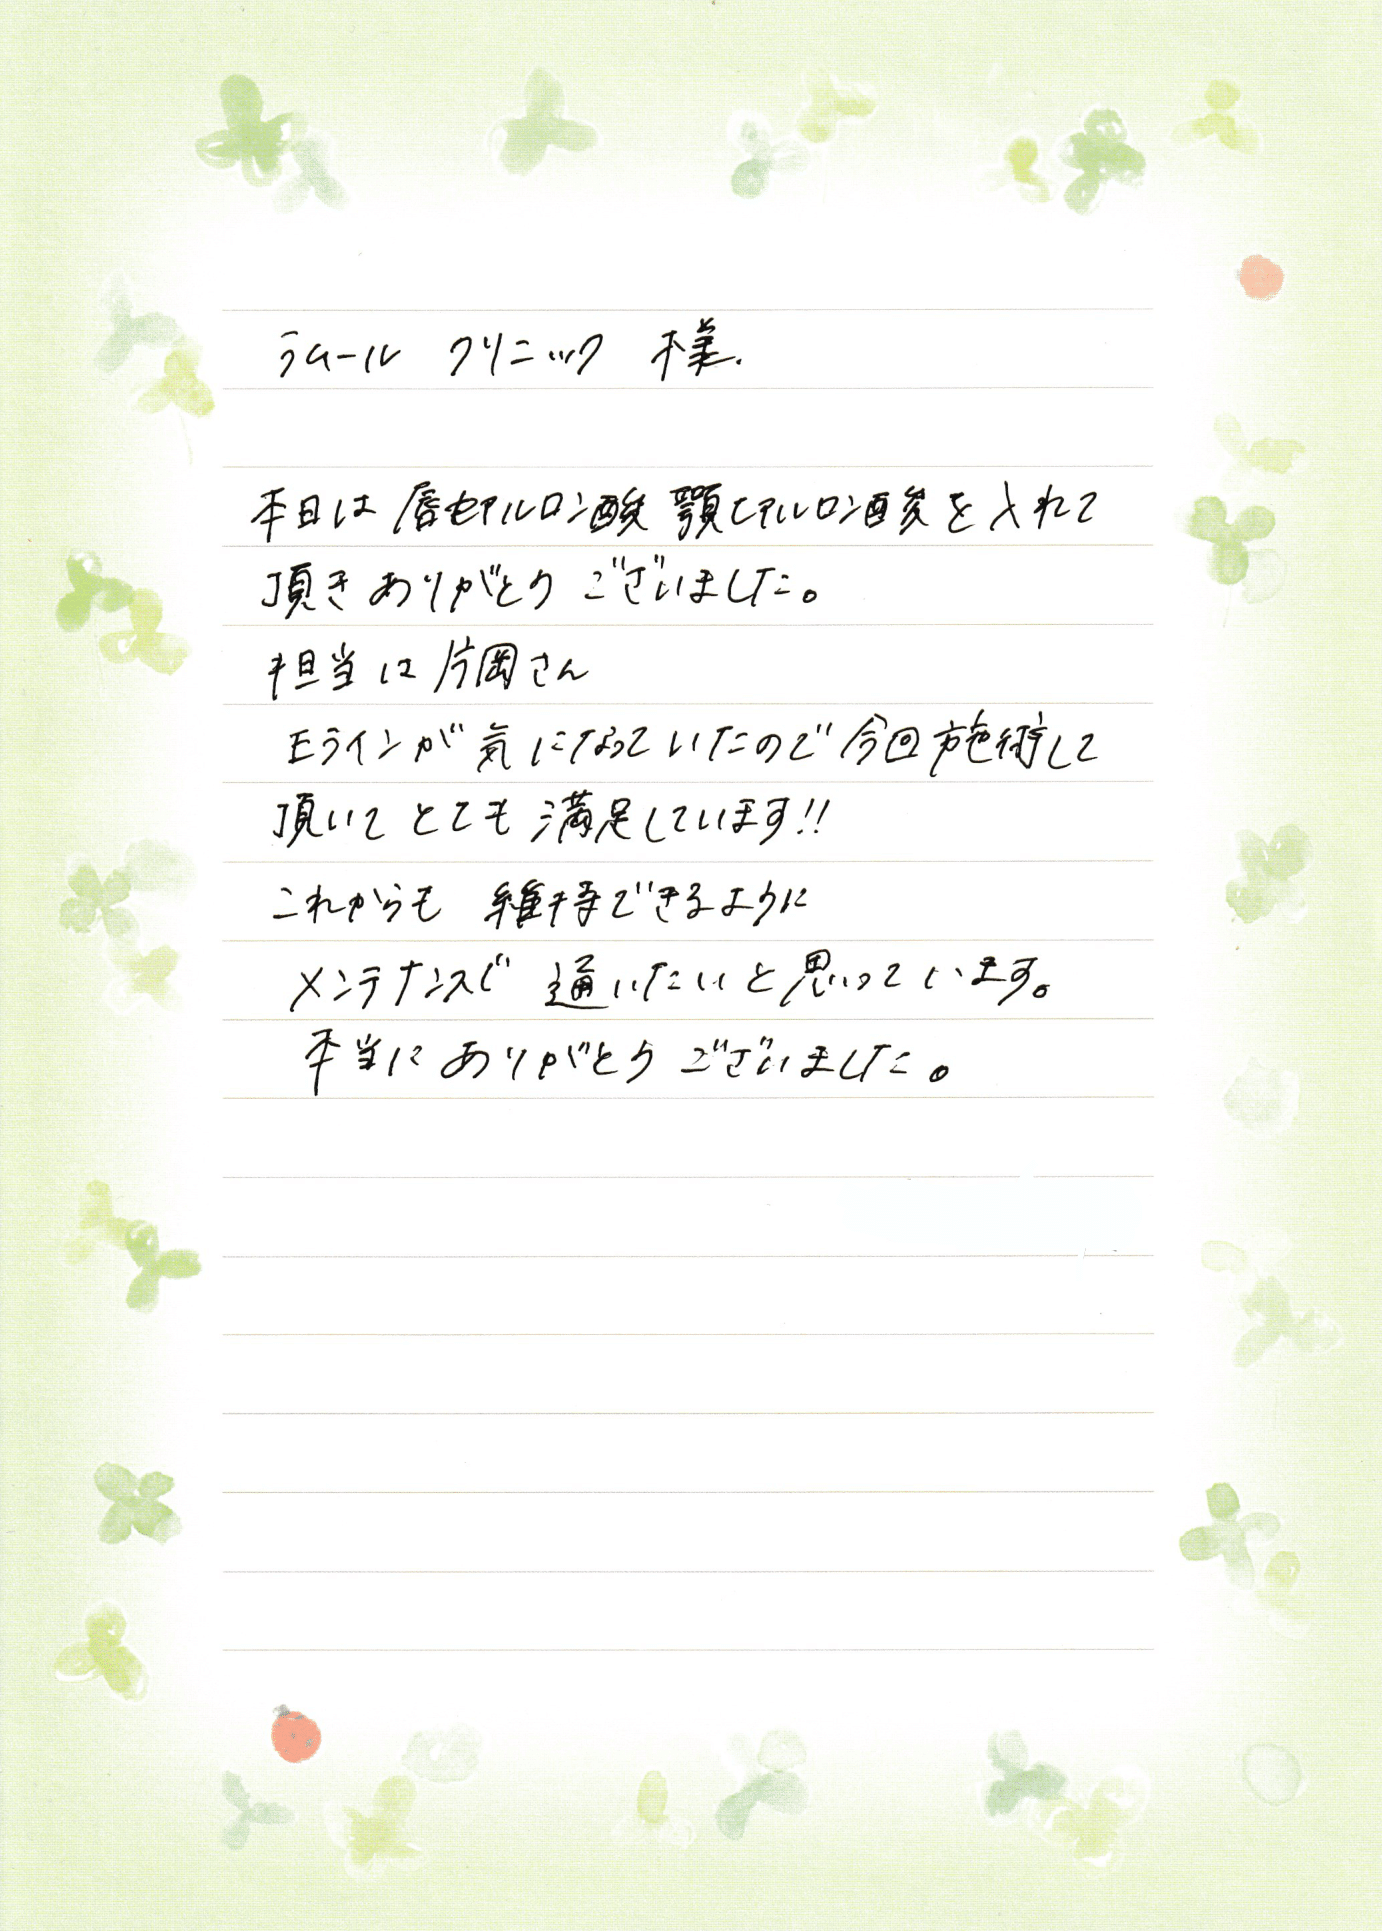 ラムール クリニック 様.
本日は唇ヒアルロン酸 顎ヒアルロン酸を入れて
頂きありがとうございました。
担当は片岡さん
Eラインが気になっていたので今回施術して
頂いてとても満足しています!!
これからも 維持できるように
メンテナンスで 通いたいと思っています。
本当にありがとうございました。